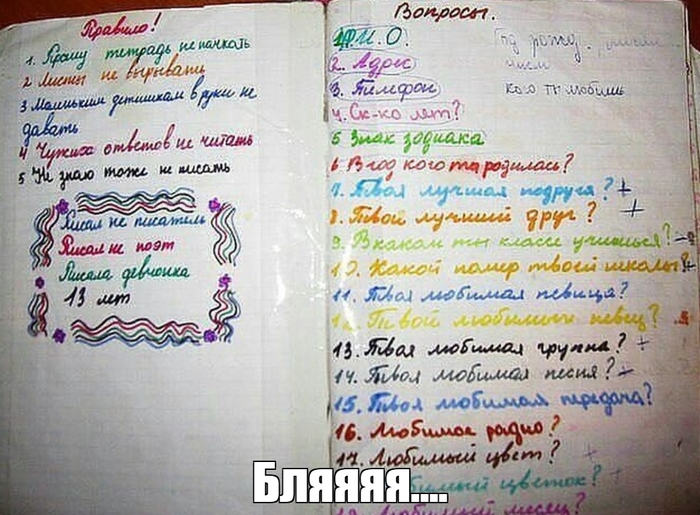 Правило!
1. Прошу тетрадь не пачкать
2 Листы не вырывати
3 Маленьким детишкам в руки не
давать
4 Чужих ответов не читать
5 Не знаю тоже не писать
Писал не писатель
Писал не поэт
Писала девчонка
13 лет
Вопросы.
1. Ф.И.О.
2. Адрес
3. Тилефон
4. Ск-ко лет?
5 Знак зодиака
6 В год кого та родилась?
7. Твоя лучшая подруга? +
8. Твой лучший друг? +
9. В каком ты классе учишься?
10. Какой номер твоей школы?
11. Твоя любимая певица?
12. Твой любимый певец?
13. Твоя любимая группа? +
14. Твоя любимая песня?
15. Твоя любимая передача?
16. Любимое радио?
17. Любимый цвет? +
любимый цветок? +
Любимый месяц?
Год рожд.
число
кого ты любишь
Бляяяя....